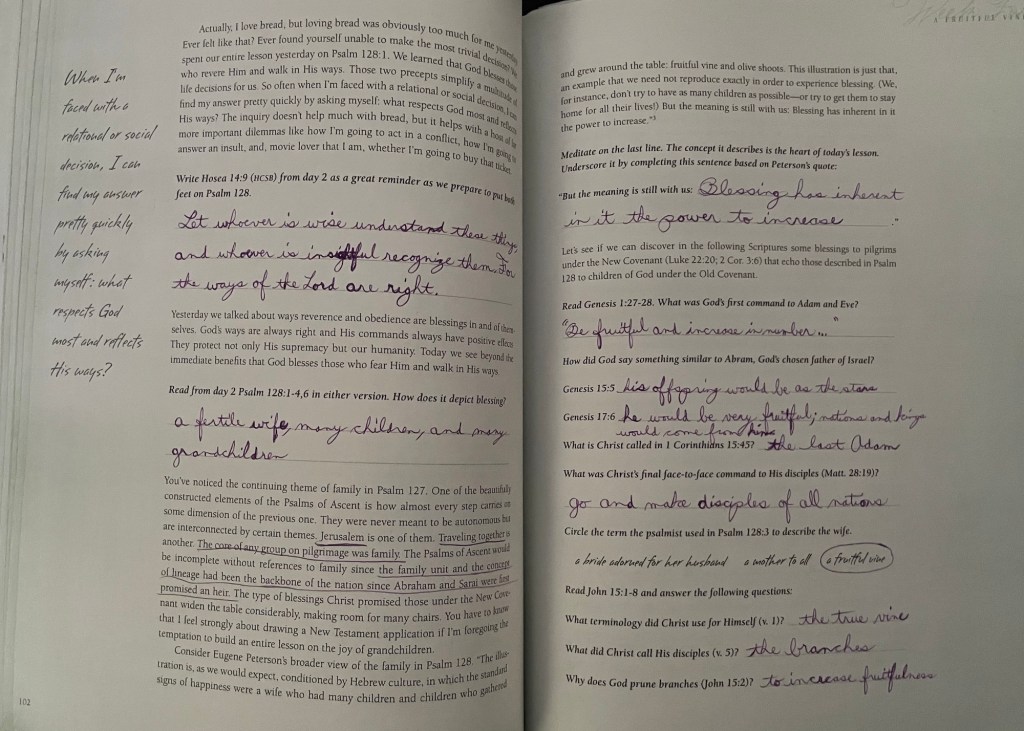 When I'm
faced with a
relational or social
decision, I can
find my answer
pretty quickly
by asking
myself: what
respects God
most and reflects
His ways?
Actually, I love bread, but loving bread was obviously too much for me yesterday.
Ever felt like that? Ever found yourself unable to make the most trivial decision? We
spent our entire lesson yesterday on Psalm 128:1. We learned that God blesses those
who revere Him and walk in His ways. Those two precepts simplify a multitude of
life decisions for us. So often when I'm faced with a relational or social decision, I can
find my answer pretty quickly by asking myself: what respects God most and reflects
His ways? The inquiry doesn't help much with bread, but it helps with a host of far
more important dilemmas like how I'm going to act in a conflict, how I'm going to
answer an insult, and, movie lover that I am, whether I'm going to buy that ticket.
Write Hosea 14:9 (HCSB) from day 2 as a great reminder as we prepare to put both
feet on Psalm 128.
Let whoever is wise understand these things,
and whoever is insightful recognize them. For
the ways of the Lord are right.
Yesterday we talked about ways reverence and obedience are blessings in and of them
selves. God's ways are always right and His commands always have positive effects
They protect not only His supremacy but our humanity. Today we see beyond the
immediate benefits that God blesses those who fear Him and walk in His ways.
Read from day 2 Psalm 128:1-4,6 in either version. How does it depict blessing?
a fertile wife, many children, and many
grandchildren
You've noticed the continuing theme of family in Psalm 127. One of the beautifully
constructed elements of the Psalms of Ascent is how almost every step carries on
some dimension of the previous one. They were never meant to be autonomous but
are interconnected by certain themes. Jerusalem is one of them. Traveling together is
another. The core of any group on pilgrimage was family. The Psalms of Ascent would
be incomplete without references to family since the family unit and the concept
of lineage had been the backbone of the nation since Abraham and Sarai were first
promised an heir. The type of blessings Christ promised those under the New Cove-
nant widen the table considerably, making room for many chairs. You have to know
that I feel strongly about drawing a New Testament application if I'm foregoing the
temptation to build an entire lesson on the joy of grandchildren.
Consider Eugene Peterson's broader view of the family in Psalm 128. "The illus-
tration is, as we would expect, conditioned by Hebrew culture, in which the standard
signs of happiness were a wife who had many children and children who gathered
102
A FRUITFUL VINE
and grew around the table: fruitful vine and olive shoots. This illustration is just that,
an example that we need not reproduce exactly in order to experience blessing. (We,
for instance, don't try to have as many children as possible—or try to get them to stay
home for all their lives!) But the meaning is still with us: Blessing has inherent in it
the power to increase."³
Meditate on the last line. The concept it describes is the heart of today's lesson.
Underscore it by completing this sentence based on Peterson's quote:
"But the meaning is still with us: Blessing has inherent
in it the power to increase ."
Let's see if we can discover in the following Scriptures some blessings to pilgrims
under the New Covenant (Luke 22:20; 2 Cor. 3:6) that echo those described in Psalm
128 to children of God under the Old Covenant.
Read Genesis 1:27-28. What was God's first command to Adam and Eve?
"Be fruitful and increase in number..."
How did God say something similar to Abram, God's chosen father of Israel?
Genesis 15:5 his offspring would be as the stars
Genesis 17:6 he would be very fruitful; nations and kings
would come from him
What is Christ called in 1 Corinthians 15:45? the last Adam
What was Christ's final face-to-face command to His disciples (Matt. 28:19)?
go and make disciples of all nations
Circle the term the psalmist used in Psalm 128:3 to describe the wife.
a bride adorned for her husband a mother to all a fruitful vine
Read John 15:1-8 and answer the following questions:
What terminology did Christ use for Himself (v. 1)? the true vine
What did Christ call His disciples (v. 5)? the branches
Why does God prune branches (John 15:2)? to increase fruitfulness